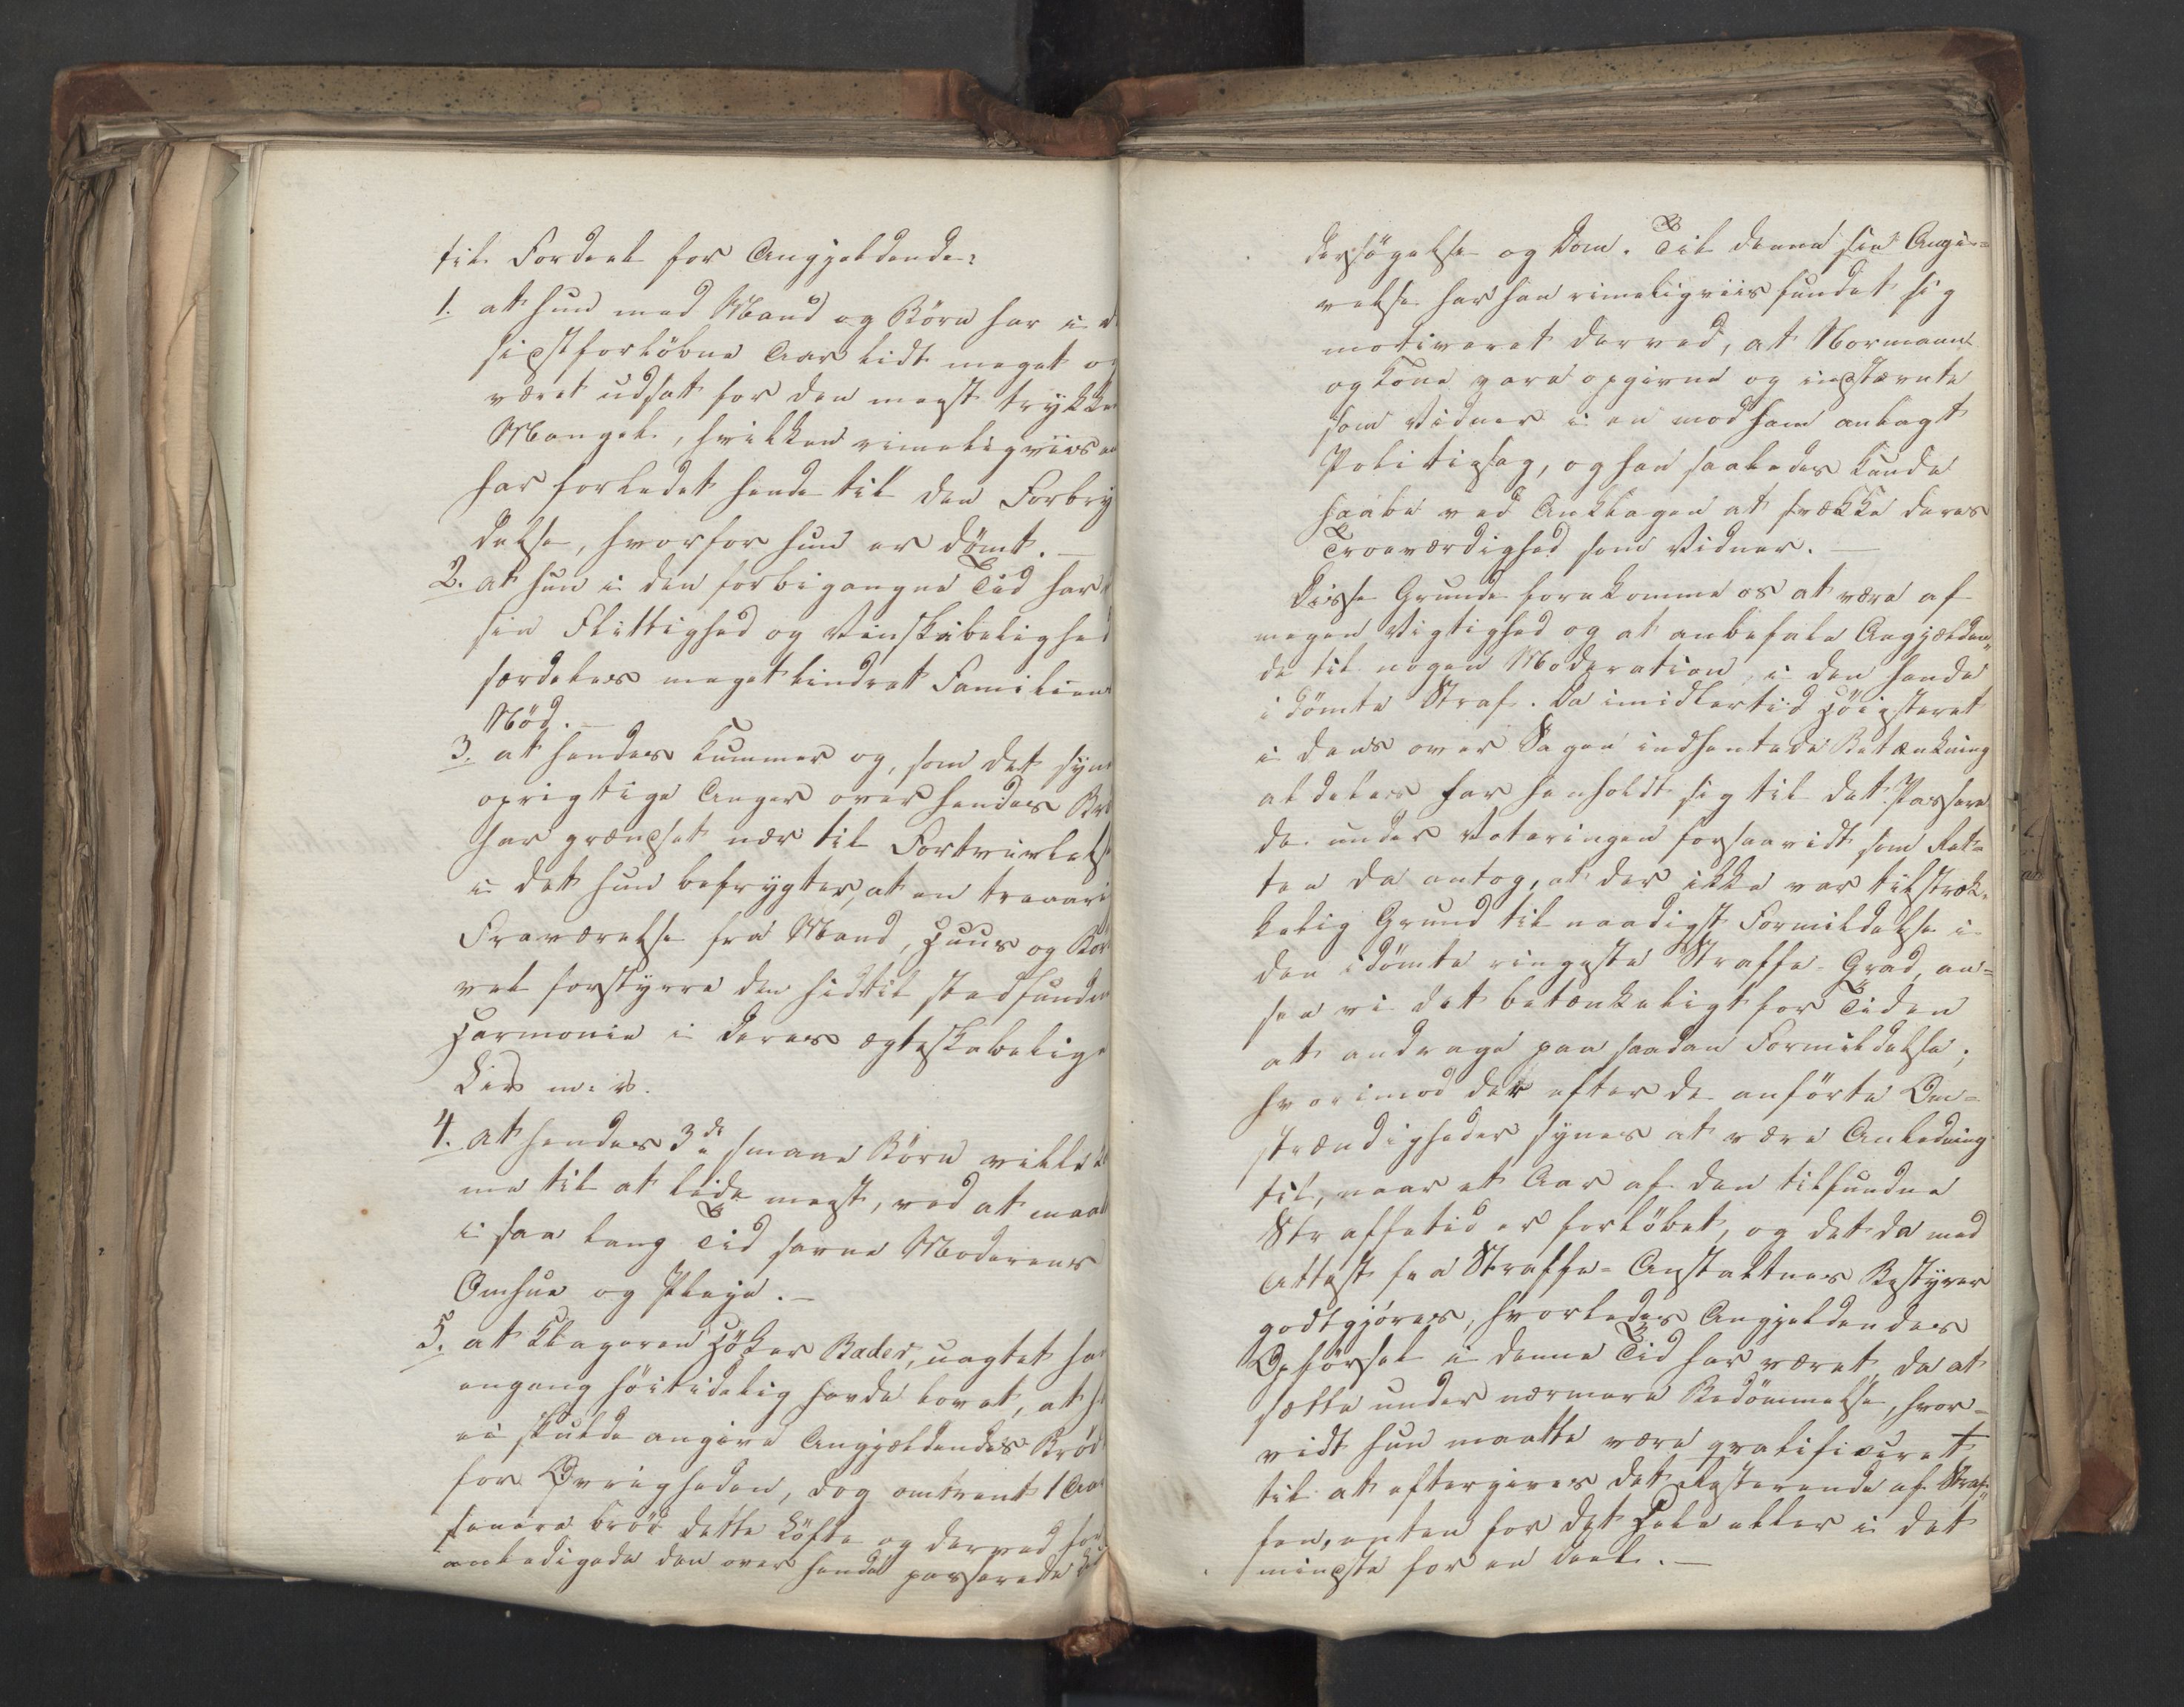 til Fordeel for Angjeldende:
1. at hun med Mand og Börn har i d
sidstforløbne Aar lidt meget og
været udsat for den meest trykke
Mangel, hvilken rimeligviis en
har forledet hende til den Forbry
delse, hvorfor hun er dömt. —
2. at hun i den forbigangne Tid har
sin Flittighed og Vinskibelighed
særdeles meget lindret Familiens
Nöd. —
3. at hendes Kummer og, som det syne
oprigtige Anger over hendes Brö
har grændset nær til Fortvivlelse
i det hun befrygter, at en treaari
Fraværelse fra Mand, Huus og Bör
vel forstyrre den hidtil stedfunden
Harmonie i deres ægteskabelige
Liv m: v.
4. at hendes 3de smaae Börn ville ko
me til at lide meest, ved at maat
i saa lang Tid savne Moderens
Omhue og Pleje. —
5. at Klageren Höker Bader, uagtet han
engang höitidelig havde lovet, at h
ei skulde angive Angjældendes Bröd
for Øvrigheden, dog omtrent 1 Aar
senere bröd dette Löfte og derved for
anledigede den over hende passerede Un
dersögelse og Dom. Til denne sin Angi=
velse har han rimeligviis fundet sig
motiveret derved, at Normann
og Kone vare opgivne og indstævnte
som Vidner i en mod ham anlagt
Politiesag, og han saaledes kunde
haabe ved Anklagen at svække deres
Troeværdighed som Vidner. —
Disse Grunde forekomme os at være af
megen Vigtighed og at anbefale Angjælden„
de til nogen Moderation i den hende
idömte Straf. Da imidlertid Höiesteret
i dens over Sagen indhentede Betænkning
aldeles har henholdt sig til det Passere
de under Voteringen forsaavidt som Ret=
ten da antog, at der ikke var tilstræk=
kelig Grund til naadigst Formildelse i
den idömte ringeste Straffe-Grad, an=
see vi det betænkeligt for Tiden
at andrage paa saadan Formildelse;
hvorimod der efter de anförte Om=
stændigheder synes at være Anledning
til, naar et Aar af den tilfundne
Straffetid er forlöbet, og det da med
Attest fra Straffe-Anstaltnes Bestyrer
godtgjöres, hvorledes Angjeldendes
Opförsel i denne Tid har været, da at
sætte under nærmere Bedömmelse, hvor=
vidt hun maatte være qvalificeret
til at eftergives det Resterende af Straf„
fen, enten for det Hele eller i det
mindste for en Deel. —